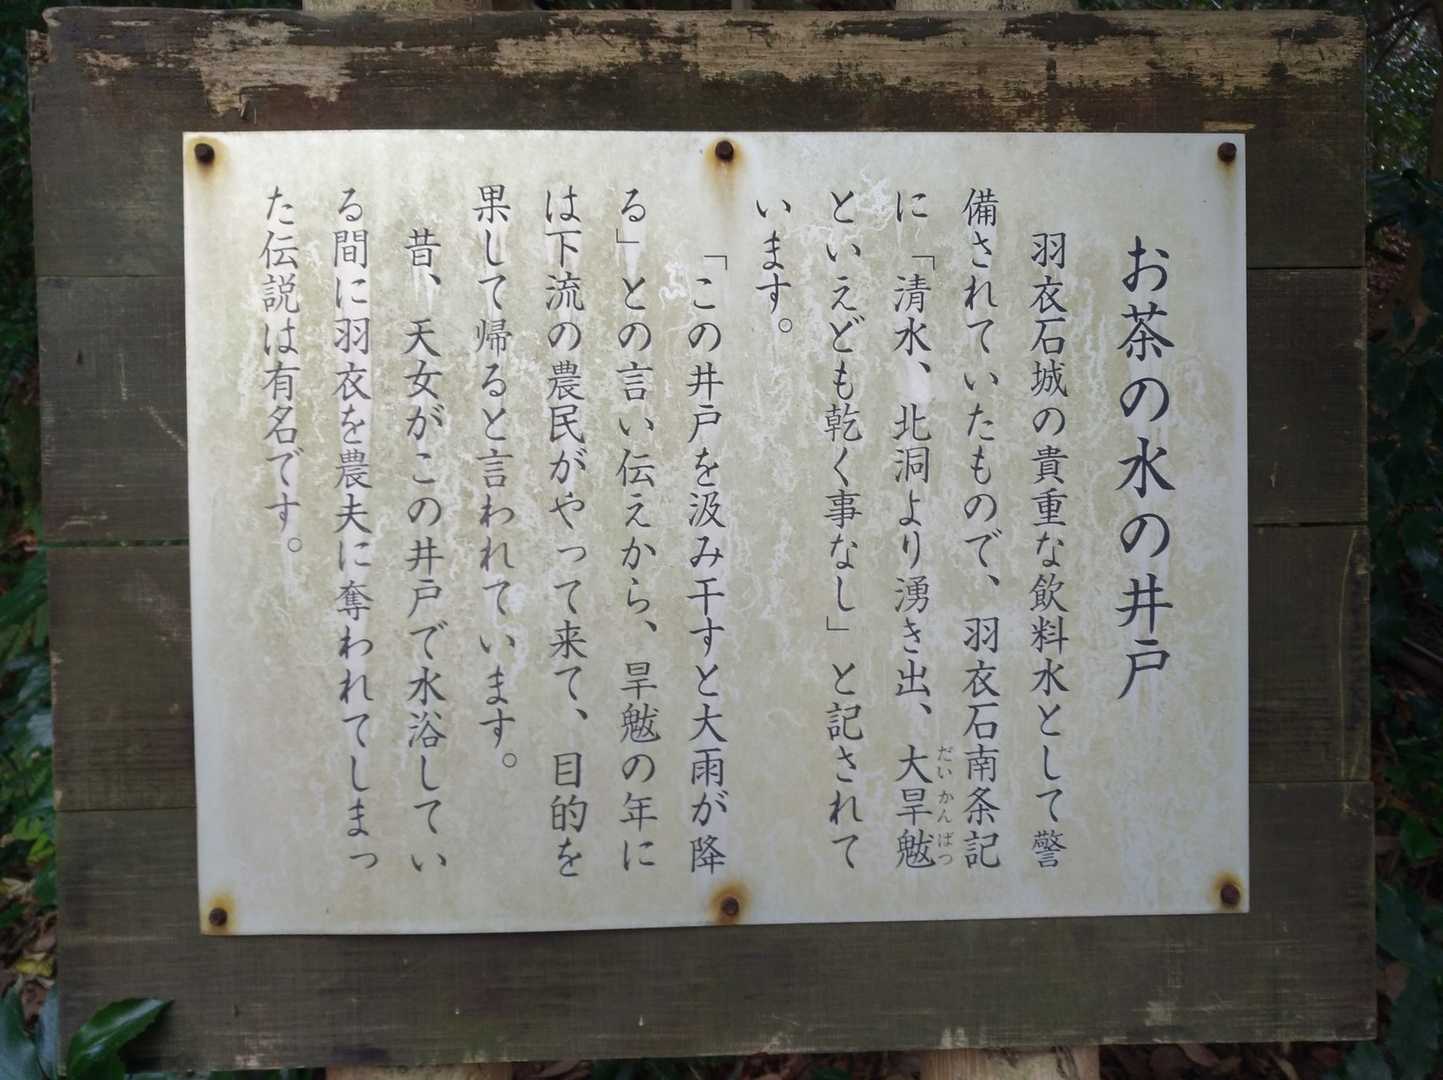 お茶の水の井戸
羽衣石城の貴重な飲料水として警
備されていたもので、羽衣石南条記
に「清水、北洞より湧き出、大旱魃
だいかんばつ
といえども乾く事なし」と記されて
います。
「この井戸を汲み干すと大雨が降
る」との言い伝えから、旱魃の年に
は下流の農民がやって来て、目的を
果して帰ると言われています。
昔、天女がこの井戸で水浴してい
る間に羽衣を農夫に奪われてしまっ
た伝説は有名です。